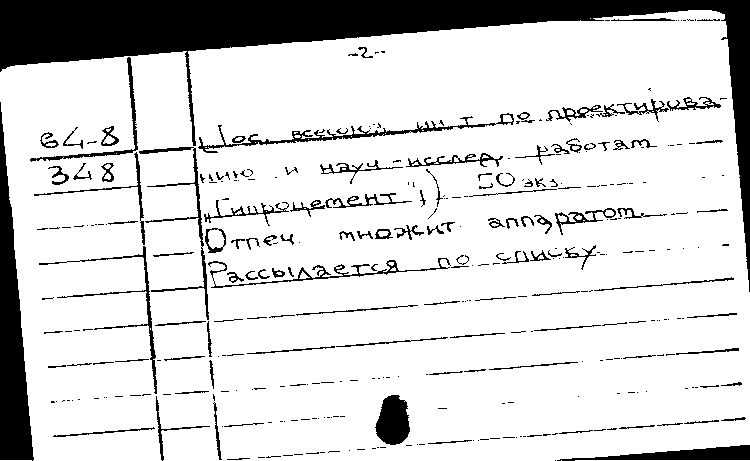 -2-
64-8
348
Гос. всесоюз. ин-т по проектирова-
нию и науч-исслед. работам
„Гипроцемент",) 50 экз.
Отпеч. множит аппаратом.
Рассылается по списку.